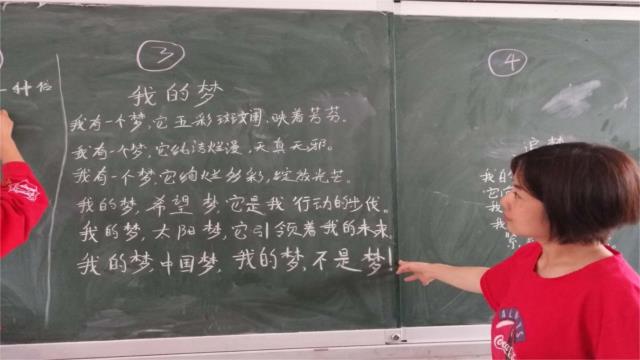 ③
我的梦
我有一个梦,它五彩斑斓,映着芳芬。
我有一个梦,它纯洁烂漫,天真无邪。
我有一个梦,它绚烂多彩,绽放光芒。
我的梦,希望梦,它是我行动的步伐。
我的梦,太阳梦,它引领着我的未来
我的梦,中国梦,我的梦,不是梦!
④
追梦
我的
我